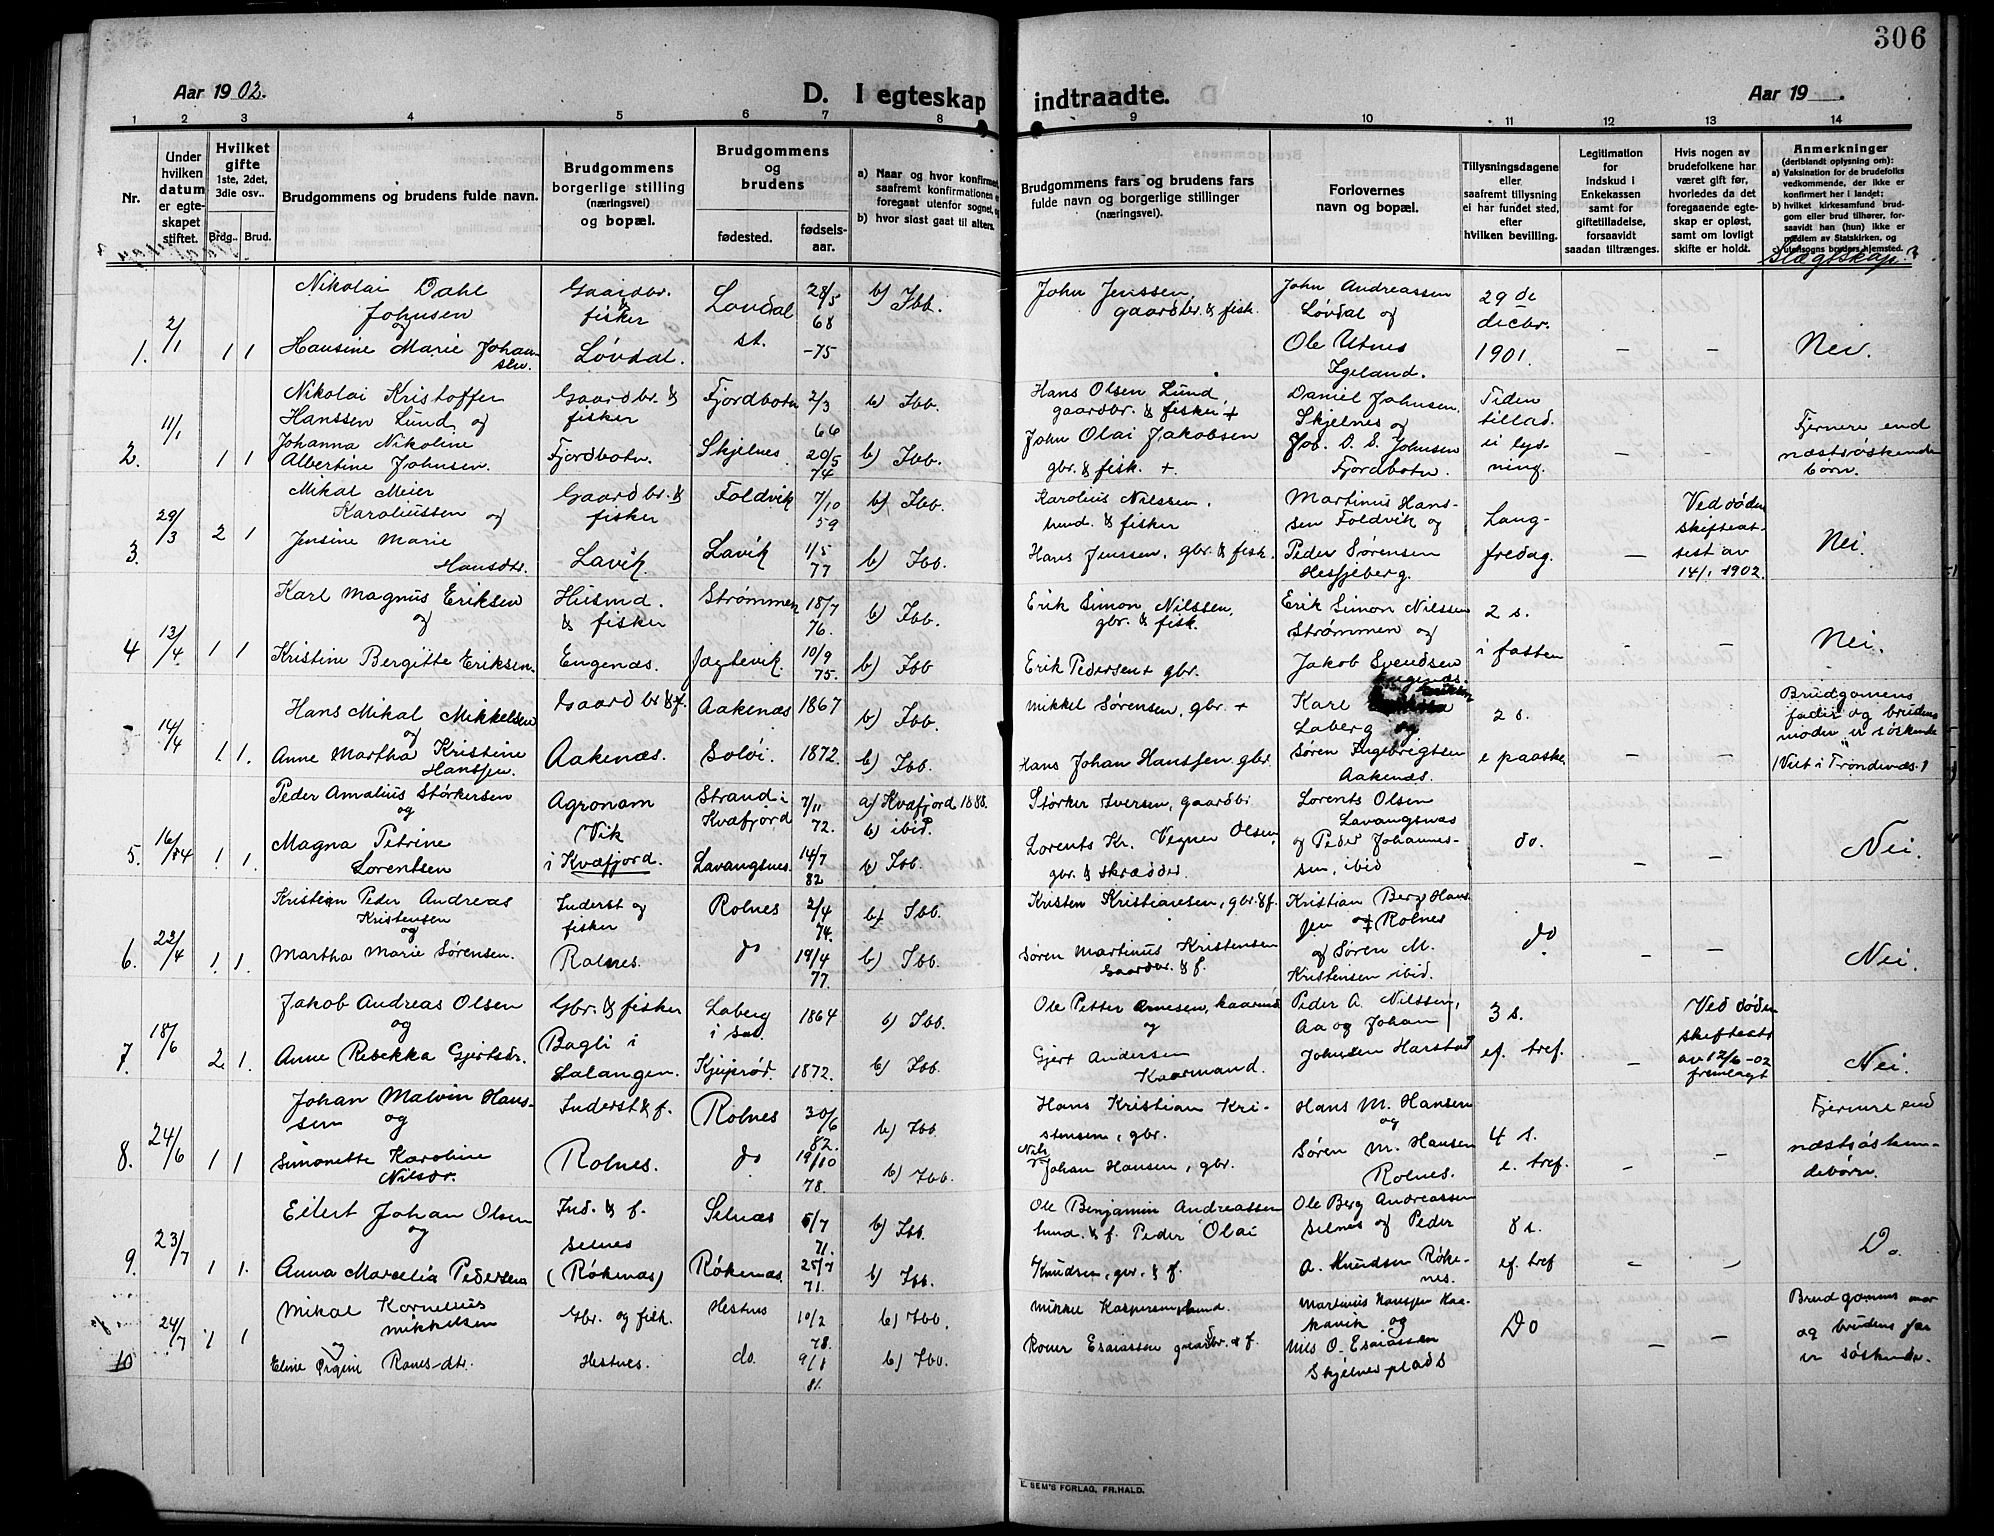 306
Aar 1902.
D. I egteskap indtraadte.
Aar 19
1 2 3 4 5 6 7 8 9 10 11 12 13 14
Nr.
Under hvilken datum er egteskapet stiftet.
Hvilket gifte 1ste, 2det, 3die osv..
Brdg.. Brud.
Brudgommens og brudens fulde navn.
Brudgommens borgerlige stilling (næringsvei) og bopæl.
Brudgommens og brudens
fødested.
fødselsaar.
a) Naar og hvor konfirmert, saafremt konfirmationen er foregaat utenfor sognet, og
b) hvor sidst gaat til alters.
Brudgommens fars og brudens fars fulde navn og borgerlige stillinger (næringsvei).
Forlovernes navn og bopæl.
Tillysningsdagene eller saafremt tillysning ei har fundet sted, efter hvilken bevilling.
Legitimation for indskud i Enkekassen samt for giftetilladelse, forsaavidt saadan tiltrænges.
Hvis nogen av brudefolkene har været gift før, hvorledes da det foregaaende egteskap er opløst, samt om lovligt skifte er holdt.
Anmerkninger (deriblandt oplysning om):
a) Vaksination for de brudefolks vedkommende, der ikke er konfirmert her i landet;
b) hvilket kirkesamfund brudgom eller brud tilhører, forsaavidt han (hun) ikke er medlem av Statskirken, og
c) utensogns bruders hjemsted.
Slægtskap?
1. 2/1 1 1
Nikolai Dahl Johnsen og
Hansine Marie Johansen
Gaardbr. & fisker Løvdal.
Løvdal st.
28/5 68
-75
b) Ibb.
John Jenssen, gaardbr. & fisk.
John Andreassen Løvdal og
Ole Utnes Igeland.
29 de decbr. 1901.
– –
Nei.
2. 11/1 1 1
Nikolai Kristoffer Hanssen Lund, og
Johanna Nikoline Albertine Johnsen.
Gaardbr. & fisker Fjordbotn.
Fjordbotn 2/3 66
Skjelnes 20/5 74
b) Ibb.
b) Ibb.
Hans Olsen Lund, gaardbr. & fisker +
John Olai Jakobsen gbr. & fisk. +
Daniel Johnsen, Skjelnes og
Job. O. S. Johnsen Fjordbotn.
Tiden tillad. ei lysning.
– –
Fjernere end næstsøskendebørn.
3. 29/3 2 1
Mikal Meier Karoliussen og
Jensine Marie Hansdtr.
Gaardbr. & fisker Lavik.
Foldvik 7/10 59
Lavik 1/5 77
b) Ibb.
b) Ibb.
Karolius Nilssen, hmd. & fisker
Hans Jenssen, gbr. & fisk.
Martinus Hanssen Foldvik og
Peder Sørensen Hesjeberg.
Langfredag.
–
Ved døden skifteattest av 14/1 1902.
Nei.
4 13/4 1 1
Karl Magnus Eriksen og
Kristine Bergitte Eriksen.
Husmd. & fisker Engenæs.
Strømmen 18/7 76.
Jagtevik. 10/9 75.
b) Ibb.
b) Ibb
Erik Simon Nilssen, gbr. & fisk.
Erik Pedersen + gbr.
Erik Simon Nilssen Strømmen og
Jakob Svendsen Engenæs.
2 s. i fasten
– –
Nei.
14/4 1. 1.
Hans Mikal Mikkelsen og
Anne Martha Kristine Hanssen.
Gaardbr & f. Aakenæs.
Aakenæs 1867
Soløi. 1872.
b) Ibb.
b) Ibb.
Mikkel Sørensen, gbr. +
Hans Johan Hanssen gbr.
Karl Eriksen Laberg og
Søren Ingebrigtsen Aakenæs.
2 s. e paaske
– –
Brudgomens fader og brudens moder er søskende
(Viet i Trondenæs.)
5. 16/4 1. 1.
Peder Amalius Størkersen og
Magna Petrine Lorentsen
Agronom Vik i Kvæfjord.
Strand i Kvæfjord 7/11 72.
Lavangsnes. 14/7 82
a) Kvæfjord 1888.
b) ibid.
b) Ibb.
Størker Iversen, gaardbr
Lorents Kr. Vegner Olsen, gbr. & skrædder.
Lorents Olsen Lavangsnæs
og Peder Johannessen, ibid
do.
– –
Nei.
6. 22/4 1. 1.
Kristian Peder Andreas Kristensen og
Martha Marie Sørensen.
Inderst og fisker Rolnes.
Rolnes 2/4 74.
do 19/4 77.
b) Ibb.
b) Ibb.
Kristen Kristiansen, gbr. & f.
Søren Martinus Kristensen Gaardbr. & f.
Kristian Berg Hansen Rolnes
og Søren M. Kristensen ibid.
do
– –
Nei.
7. 18/6 2 1.
Jakob Andreas Olsen og
Anne Rebekka Gjertsdr.
Gbr. & fisker Bagli i Salangen.
Laberg i Sal. 1864
1872.
b) Ibb.
b) Ibb.
Ole Petter Arnesen, kaarmd. og
Gjert Andersen Kaarmand.
Peder A. Nilssen, Aa og Johan Johnsen Harstad
3 s. ef. tref.
–
Ved døden skifteatt. av 12/6-02 fremlagt
Nei.
8. 24/6 1 1
Johan Malvin Hanssen og
Simonette Karoline Nilsdr.
Inderst & f. Rolnes.
Rolnes 30/6 82.
do 19/10 78.
b) Ibb.
b) Ibb.
Hans Kristian Kristensen, gbr.
Nils Johan Hansen, gbr.
Hans M. Hansen og
Søren M. Hansen Rolnes.
4 s. e. tref.
– –
Fjernere end næstsøskendebørn.
9. 23/7 1 1.
Eilert Johan Olsen og
Anna Marcelia Pedersen
Ind. & f. Selnes (Røkenæs)
Selnæs 5/7 71.
Røkenæs. 25/7 71.
b) Ibb.
b) Ibb.
Ole Benjamin Andreassen hmd. & f. Peder Olai Knudsen, gbr. & f.
Ole Berg Andreassen Selnes og Peder A. Knudsen Røkenes.
8 s. ef. tref
– –
Do.
10 24/7 1 1
Mikal Kornelius Mikkelsen og
Eline Ronesdtr.
Gbr. og fisk. Hestnes.
Hestnes 10/2 78.
do. 9/1 81.
b) Ibb.
b) Ibb.
Mikkel Kaspersen, hmd.
Roner Esaiassen gaardbr. & f.
Martinus Hanssen Kaavik og
Nils O. Esaiassen Skjelnesplads
Do
– –
Brudgomens mor og brudens far er søskende.
E. SEM'S FORLAG, FR.HALD.